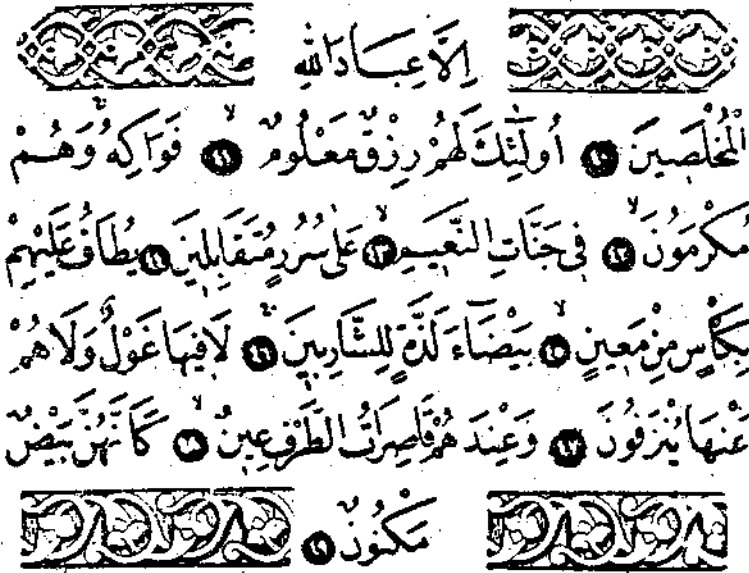 اِلَّا عِبَادَ اللهِ
الْمُخْلَصِينَ ٤٠ أُولَٰئِكَ لَهُمْ رِزْقٌ مَعْلُومٌ ۙ ٤١ فَوَاكِهُ ۚ وَهُمْ
مُكْرَمُونَ ۙ ٤٢ فِي جَنَّاتِ النَّعِيمِ ۙ ٤٣ عَلَىٰ سُرُرٍ مُتَقَابِلِينَ ٤٤ يُطَافُ عَلَيْهِمْ
بِكَأْسٍ مِنْ مَعِينٍ ۙ ٤٥ بَيْضَاءَ لَذَّةٍ لِلشَّارِبِينَ ۚ ٤٦ لَا فِيهَا غَوْلٌ وَلَا هُمْ
عَنْهَا يُنْزَفُونَ ٤٧ وَعِنْدَهُمْ قَاصِرَاتُ الطَّرْفِ عِينٌ ۙ ٤٨ كَأَنَّهُنَّ بَيْضٌ
مَكْنُونٌ ٤٩